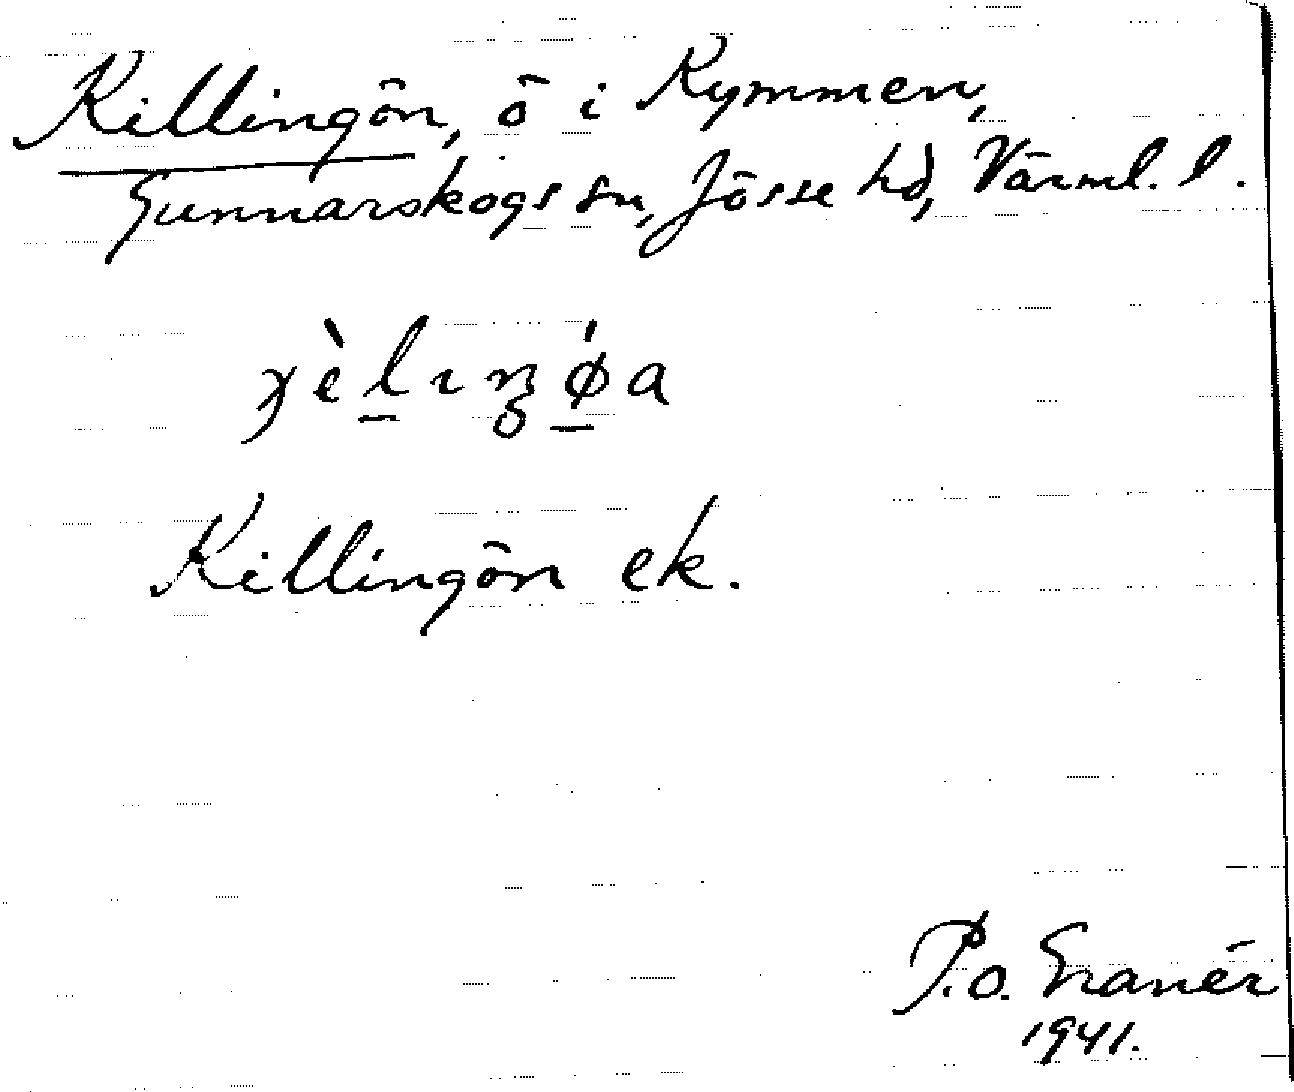 Killingön, ö i Kymmen,
Gunnarskogs sn, Jösse hd, Värml. l.
Killingön ek.
P.o. Granér
1941.